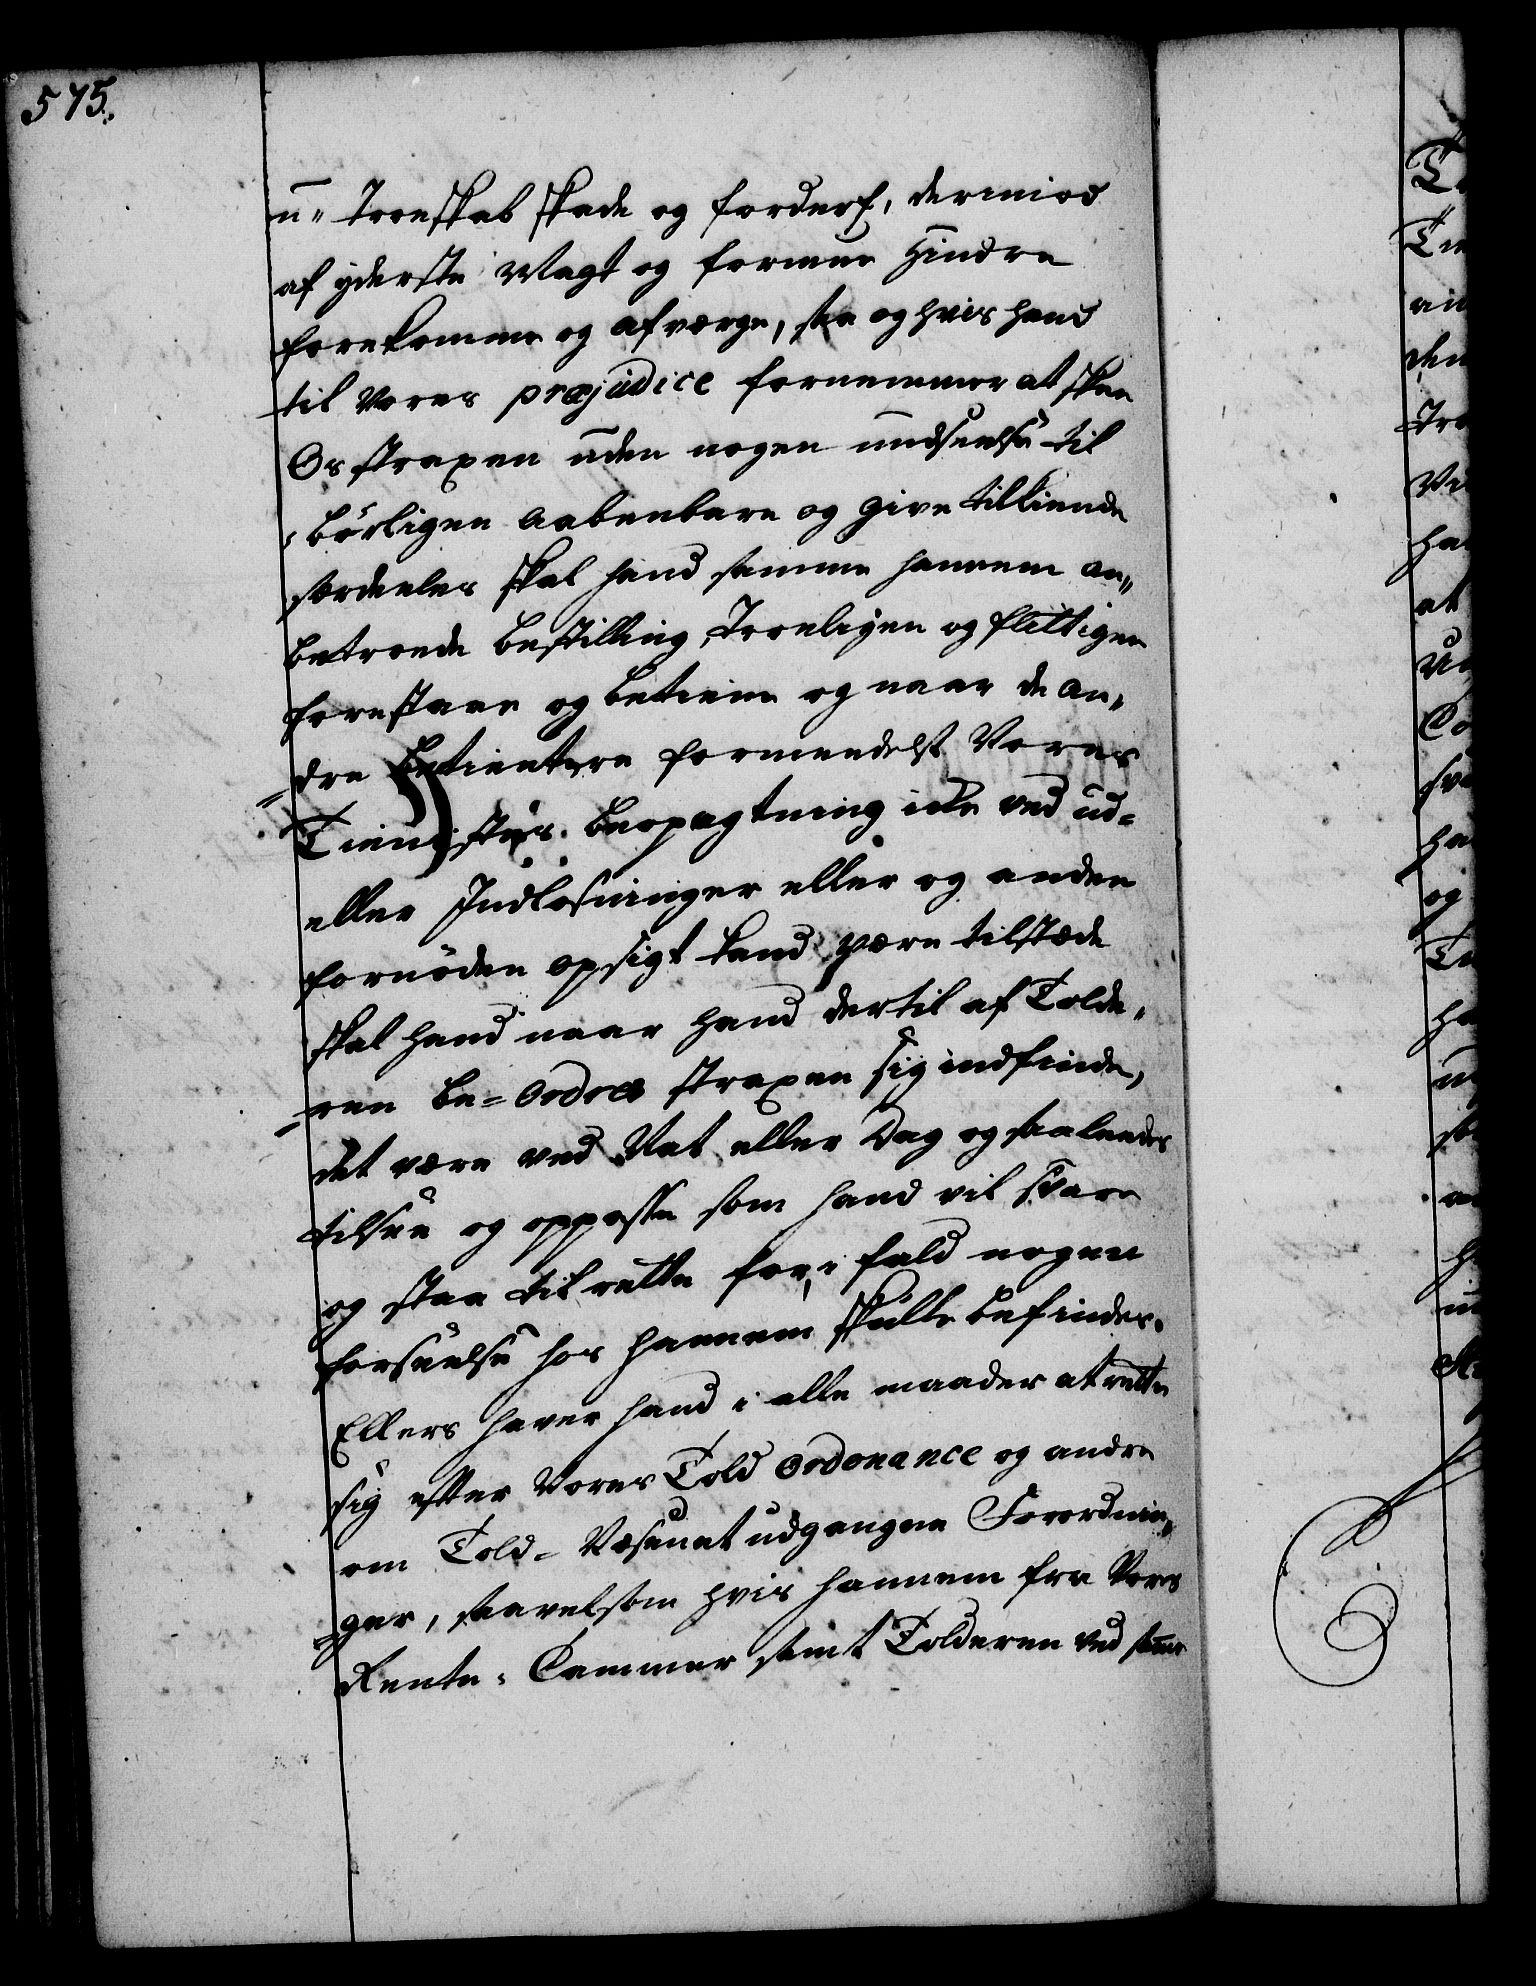 575.
u-troeskab skade og forderf, derimod
af yderste Magt og formue hindre
forekomme og afværge, saa og hvis hand
til Vores præjudice fornemmer at skee
Os straxen uden nogen undseelse til
börligen aabenbare og give tilkiende
særdeeles skal hand samme hannem an„
betroede bestilling, Troeligen og flittigen
forestaae og betiene og naar de an„
dre betientere formedelst Vores
Tienistes beopagtning icke ved ud-
eller Indlosninger eller og anden
fornöden opsigt kand være tilstæde
skal hand naar hand dertil af Tolde„
ren be-Ordres straxen sig indfinde,
det være ved Nat eller Dag og saaleedes
tilsee og oppasse som hand vil svare
og staa til rette for, i fald nogen
forseelse hos hannem skulle befindes.
Ellers haver hand i alle maader at rette
sig efter Vores Told Ordonance og andre
om Told-Væsenet udgangne Forordnin„
ger, saavelsom hvis hannem fra Vores
Rente-Cammer samt Tolderen ved